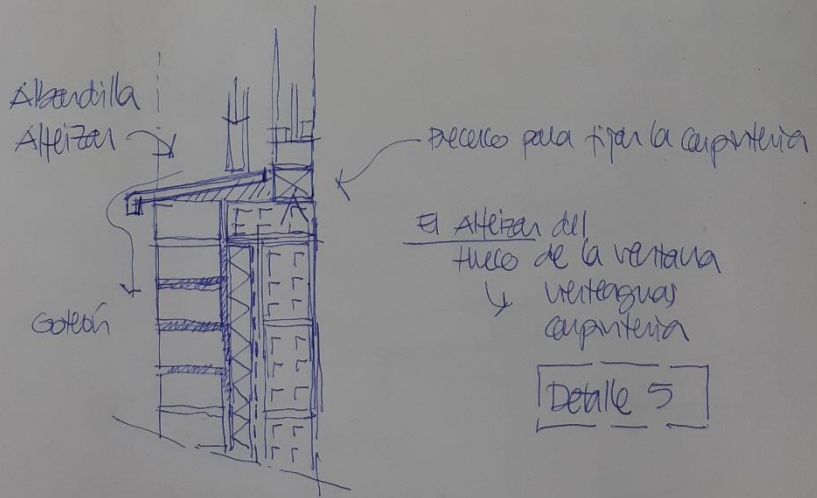 Albardilla
Alfeizar
Goterón
precerco para fijar la carpinteria
El Alfeizar del
hueco de la ventana
↳ vierteaguas
carpinteria
Detalle 5